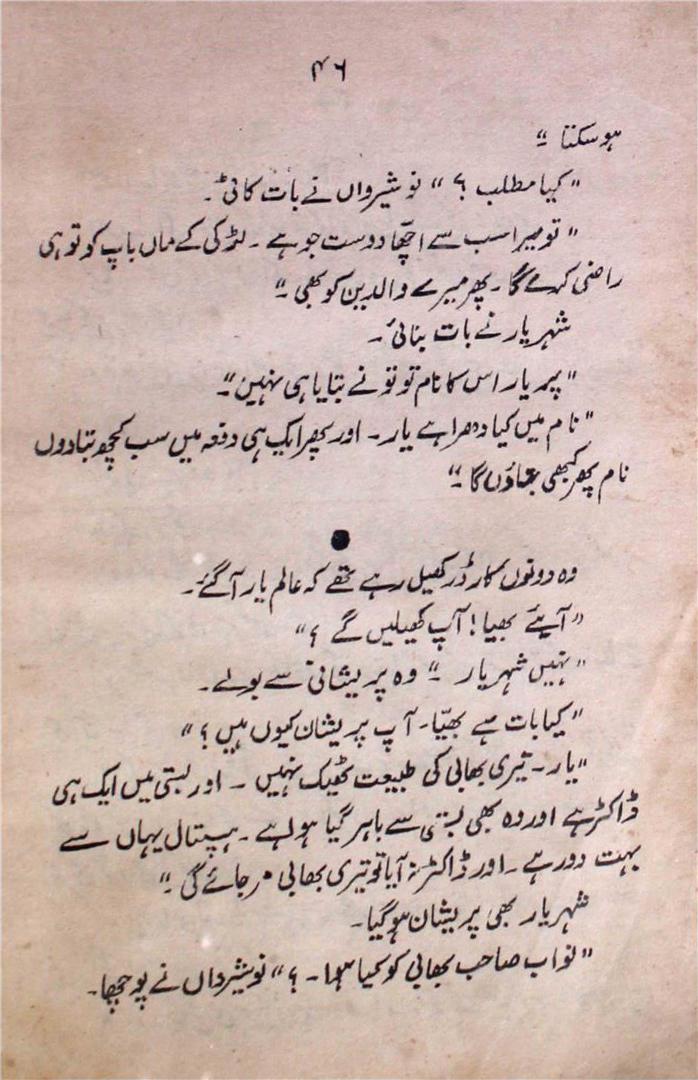 ۴۶
ہوسکتا ۔"
"کیا مطلب ؟" نوشیرواں نے بات کاٹی ۔
"تو میرا سب سے اچھا دوست جو ہے ۔ لڑکی کے ماں باپ کو تو ہی
راضی کرے گا ۔ پھر میرے والدین کو بھی ۔"
شہریار نے بات بنائی ۔
"پر یار اس کا نام تو تو نے بتایا ہی نہیں ۔"
"نام میں کیا دھرا ہے یار ۔ اور پھر ایک ہی دفعہ میں سب کچھ بتادوں
نام پھر کبھی بتاؤں گا ۔"
وہ دونوں کارڈز کھیل رہے تھے کہ عالم یار آگئے ۔
"آیئے بھیا! آپ کھیلیں گے ؟"
"نہیں شہریار ۔" وہ پریشانی سے بولے ۔
"کیا بات ہے بھیّا ۔ آپ پریشان کیوں ہیں ؟"
"یار ۔ تیری بھابی کی طبیعت ٹھیک نہیں ۔ اور بستی میں ایک ہی
ڈاکٹر ہے اور وہ بھی بستی سے باہر گیا ہوا ہے ۔ ہسپتال یہاں سے
بہت دور ہے ۔ اور ڈاکٹر نہ آیا تو تیری بھابی مرجائے گی ۔"
شہریار بھی پریشان ہوگیا ۔
"نواب صاحب بھابی کو کیا ہوا ۔ ؟" نوشیرواں نے پوچھا ۔